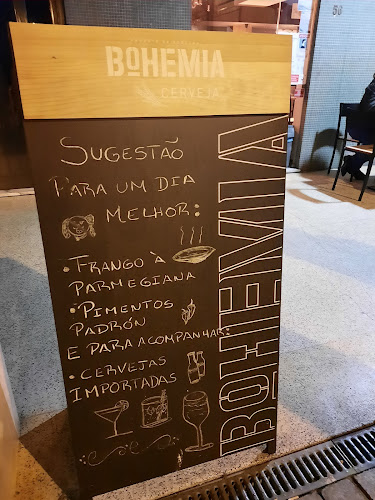 BOHEMIA
CERVEJA
58
SUGESTÃO
PARA UM DIA
MELHOR:
• FRANGO À
PARMEGIANA
• PIMENTOS
PADRÓN
E PARA ACOMPANHAR:
• CERVEJAS
IMPORTADAS
BOHEMIA